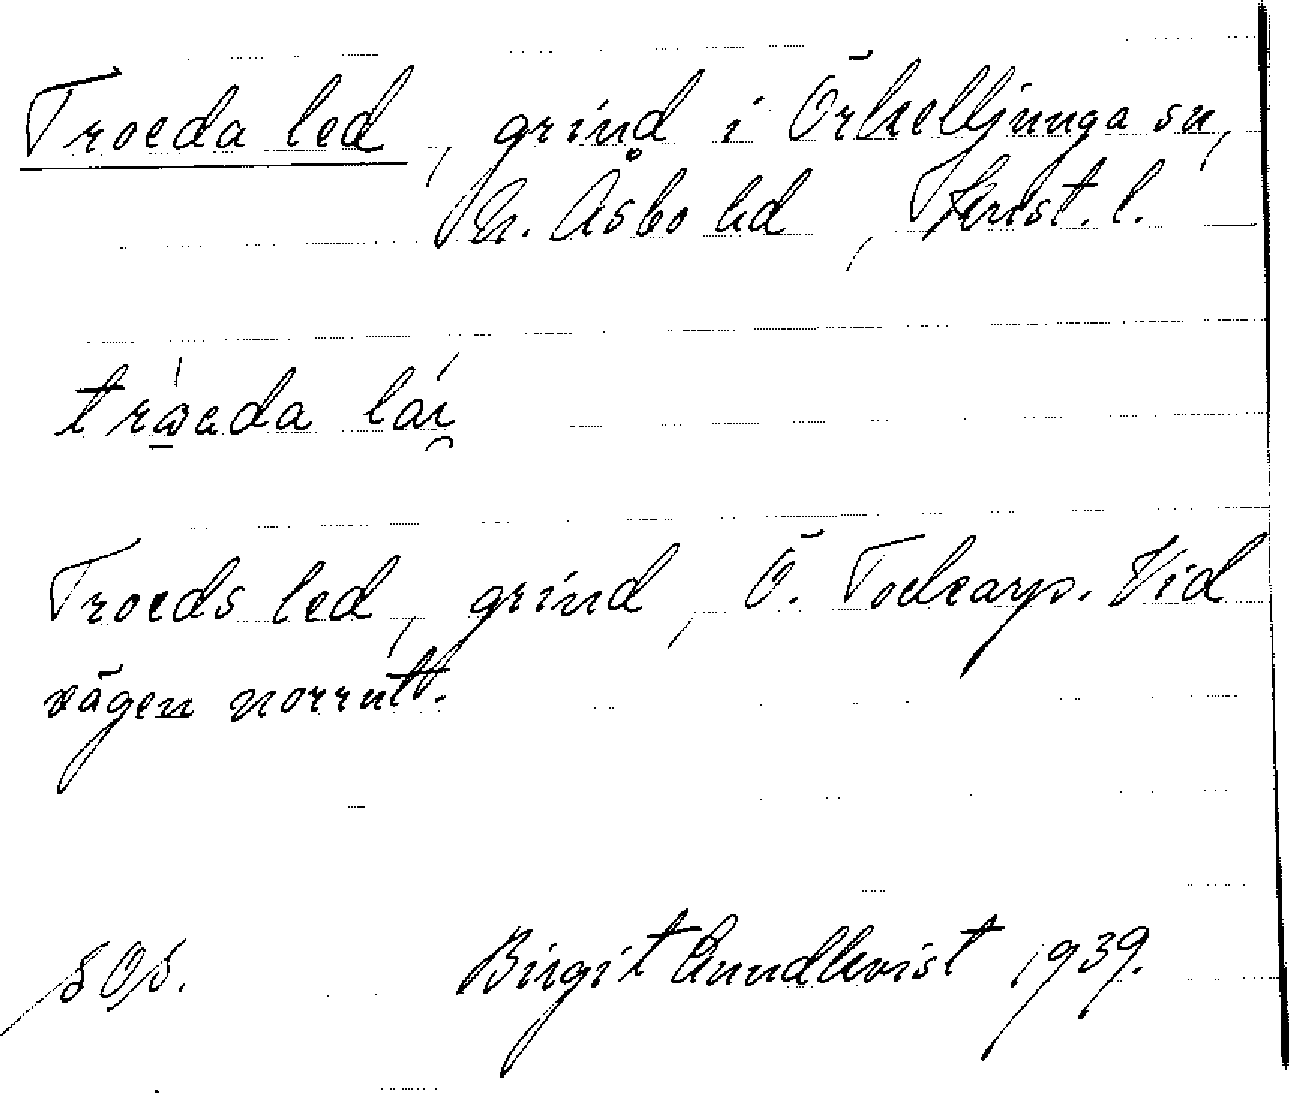 Troeda led, grind i Örkelljunga sn,
N. Åsbo hd, Krist. l.
tråeda lái̯
Troeds led, grind, Ö. Tockarp. Vid
vägen norrut.
SOS. Birgit Lundkvist 1939.